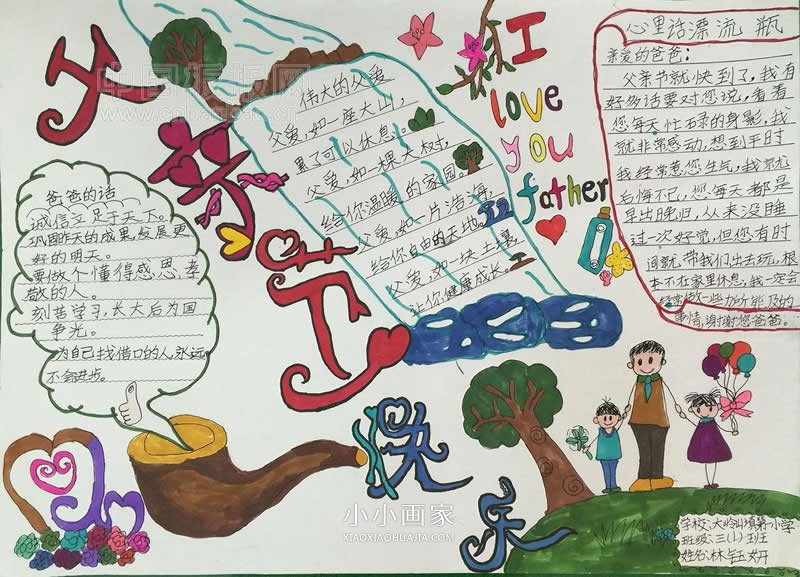 父亲节快乐
I
love
you
father
伟大的父爱
父爱,如一座大山,
累了可以休息。
父爱,如一棵大树,
给你温暖的家园。
父爱,如一片浩海,
给你自由的天地。
父爱,如一块土壤
让你健康成长。
心里话漂流瓶
亲爱的爸爸:
父亲节就快到了,我有
好多话要对您说,看看
您每天忙碌的身影,我
就非常感动,想到平时
我经常惹您生气,我就
后悔不已,您每天都是
早出晚归,从来没睡
过一次好觉,但您有时
间就带我们出去玩,根
本不在家里休息,我一定会
经常做一些力所能及的
事情,谢谢您爸爸。
爸爸的话
诚信立足于天下。
巩固昨天的成果,发展更
好的明天。
要做个懂得感恩,孝
敬的人。
刻苦学习,长大后为国
争光。
为自己找借口的人永远
不会进步。
学校:大岭山镇第一小学
班级:三(1)班
姓名:林钰妍
小小画家
XIAOXIAOHUAJIA.COM